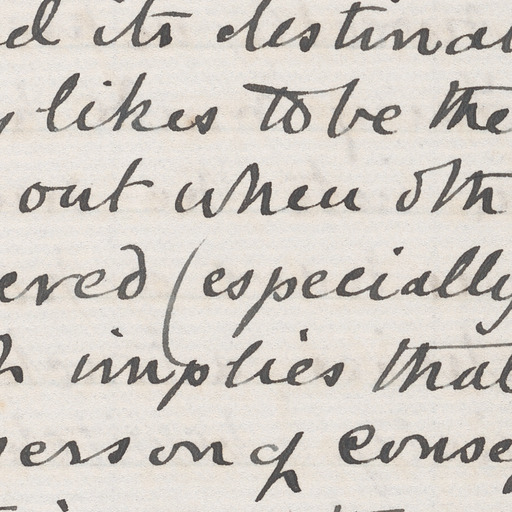 d its destinat
y likes to be the
out when oth
ered (especially
h implies that
erson of conse